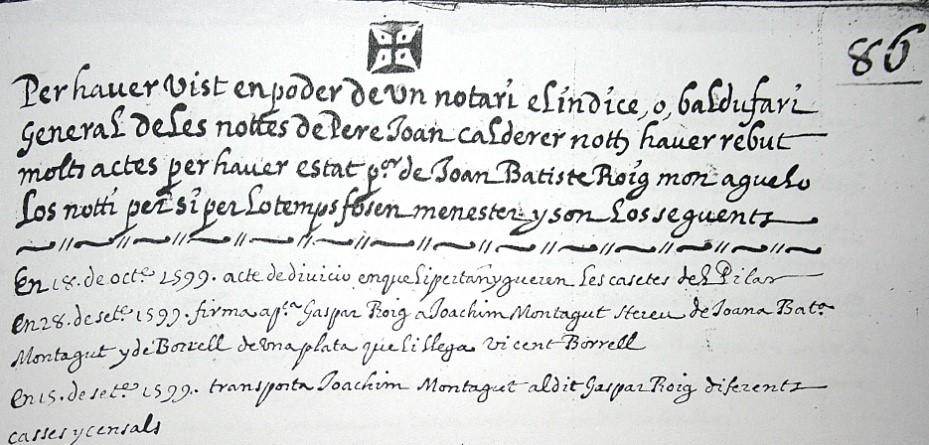 86
Per haver vist en poder de un notari el indice, o, baldufari
General de les nottes de Pere Joan calderer notti haver rebut
molts actes per haver estat p.or de Joan Batiste Roig mon aguelo
Los notti per si per lo temps fosen menester y son los seguents
En 18. de oct.e 1599. acte de divicio en que li pertañygueren les casetes del Pilar
en 28. de set.e 1599. firma ap.ca Gaspar Roig a Joachim Montagut hereu de Joana Bat.a
Montagut y de Borrell de una plata que li llega vicent Borrell
en 15. de set.e 1599. transporta Joachim Montagut al dit Gaspar Roig diferents
casses y censals